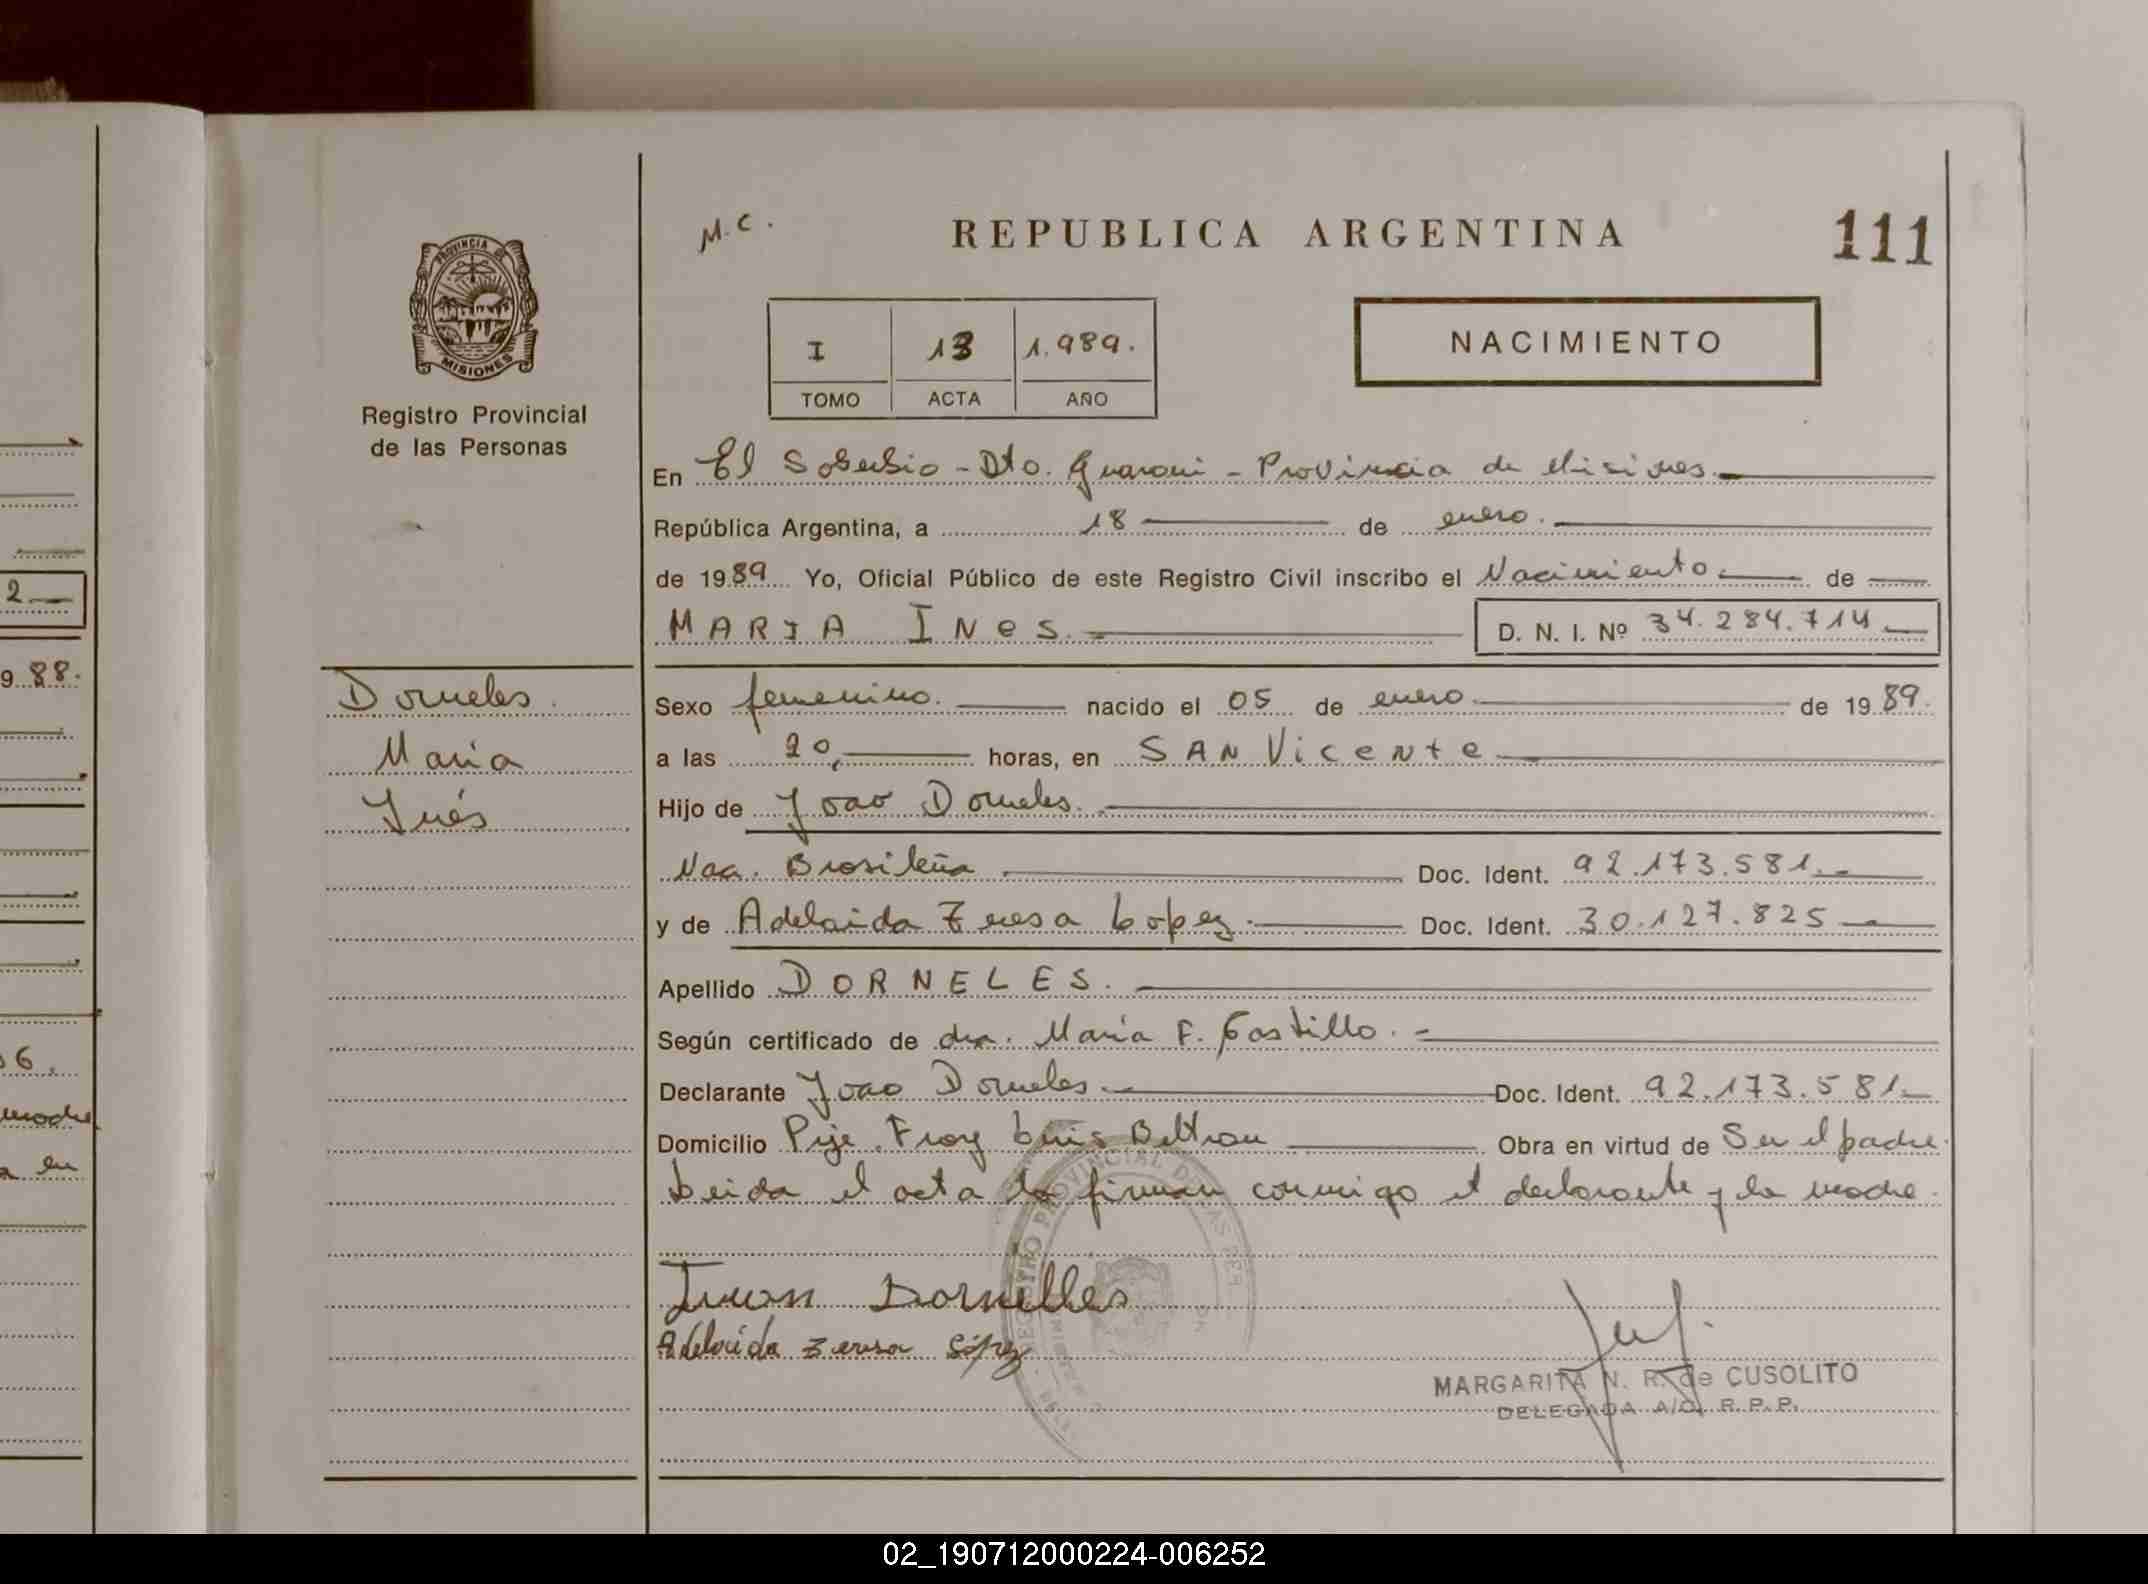 M.C.
REPUBLICA ARGENTINA
111
PROVINCIA
MISIONES
Registro Provincial
de las Personas
I 13 1.989.
TOMO ACTA AÑO
NACIMIENTO
En El Soberbio - Dto. Guarani - Provincia de Misiones.
República Argentina, a 18 de enero.
de 1989 Yo, Oficial Público de este Registro Civil inscribo el Nacimiento de
MARIA INes. D. N. I. Nº 34.284.714
Dorneles.
María
Inés
Sexo femenino. nacido el 05 de enero de 1989.
a las 20, horas, en SAN Vicente
Hijo de Joao Dorneles.
Nac. Brasileña Doc. Ident. 92.173.581.
y de Adelaida Teresa Lopez. Doc. Ident. 30.127.825
Apellido DORNELES.
Según certificado de dra. María F. Castillo.
Declarante Joao Dorneles. Doc. Ident. 92.173.581
Domicilio Pje. Fray Luis Beltran Obra en virtud de Ser el padre.
Leida el acta la firman conmigo el declarante y la madre.
Juan Dornelles
Adelaida Teresa López
REGISTRO PROVINCIAL DE LAS PER
MARGARITA N. R. de CUSOLITO
DELEGADA A/C. R.P.P.
2
9 88.
6.
madre
en
02_190712000224-006252